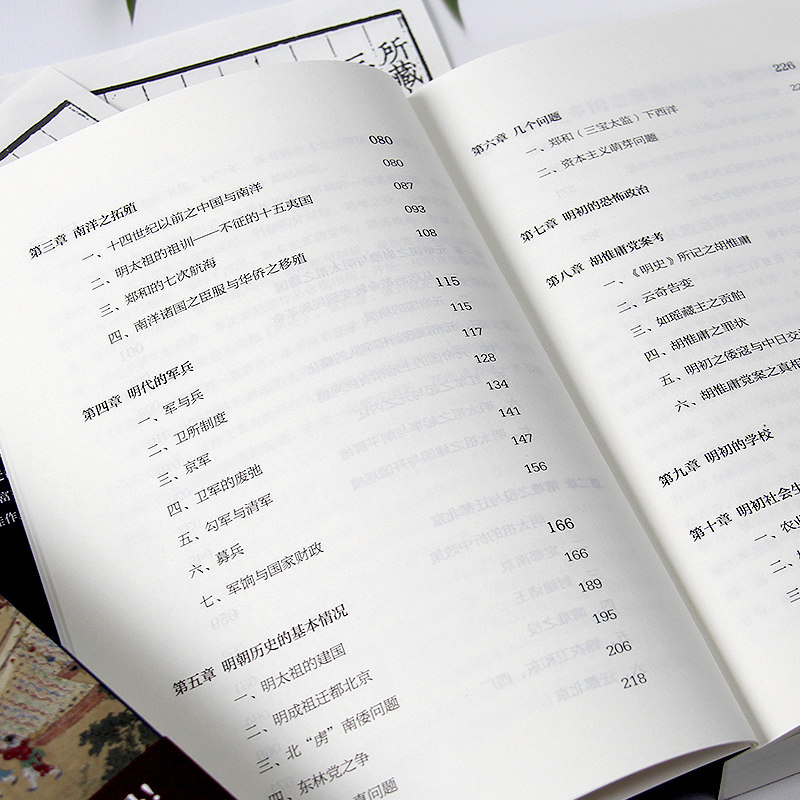 所藏
第三章 南洋之拓殖 080
一、十四世纪以前之中国与南洋 080
二、明太祖的祖训——不征的十五夷国 087
三、郑和的七次航海 093
四、南洋诸国之臣服与华侨之移殖 108
第四章 明代的军兵 115
一、军与兵 115
二、卫所制度 117
三、京军 128
四、卫军的废弛 134
五、勾军与清军 141
六、募兵 147
七、军饷与国家财政 156
第五章 明朝历史的基本情况 166
一、明太祖的建国 166
二、明成祖迁都北京 189
三、北“虏”南倭问题 195
四、东林党之争 206
问题 218
第六章 几个问题 226
一、郑和（三宝太监）下西洋
二、资本主义萌芽问题
第七章 明初的恐怖政治
第八章 胡惟庸党案考
一、《明史》所记之胡惟庸
二、云奇告变
三、如瑶藏主之贡舶
四、胡惟庸之罪状
五、明初之倭寇与中日交
六、胡惟庸党案之真相
第九章 明初的学校
第十章 明初社会生
一、农
二、
三、